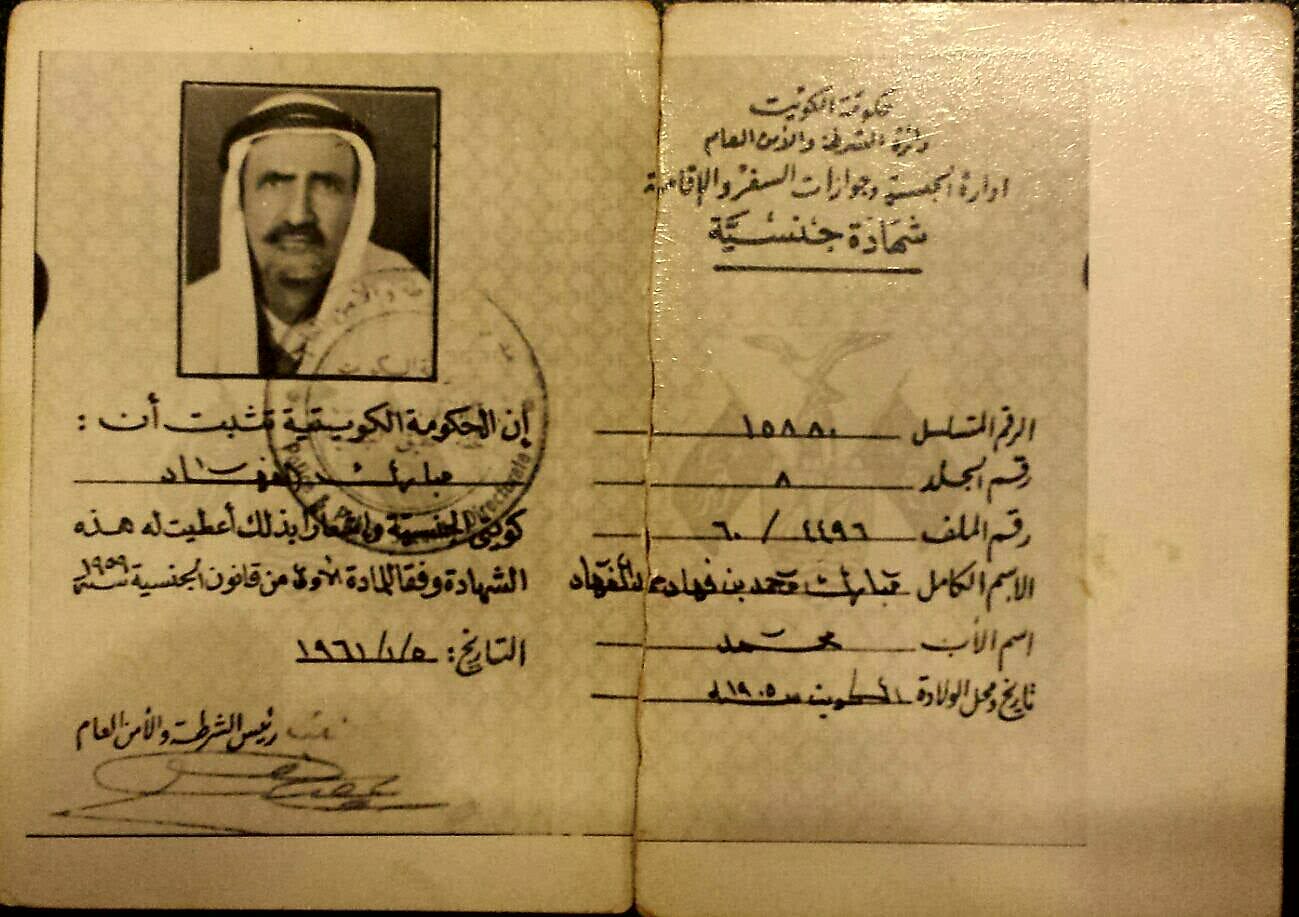 حكومة الكويت
دائرة الشرطة والأمن العام
ادارة الجنسية وجوازات السفر والإقامة
شهادة جنسية
الرقم المتسلسل ١٥٨٨٠
رقم الجلد ٨
رقم الملف ٤٤٩٦ / ٦٠
الاسم الكامل مبارك محمد بن فهاد الفهاد
اسم الأب محمد
تاريخ ومحل الولادة الكويت سنة ١٩٠٥
إن الحكومة الكويتية تثبت أن :
مبارك الفهاد
كويتي الجنسية واشعارا بذلك أعطيت له هذه
الشهادة وفقا للمادة الأولى من قانون الجنسية سنة ١٩٥٩
التاريخ : ١٩٦١/١/٥
رئيس الشرطة والأمن العام
Directorate